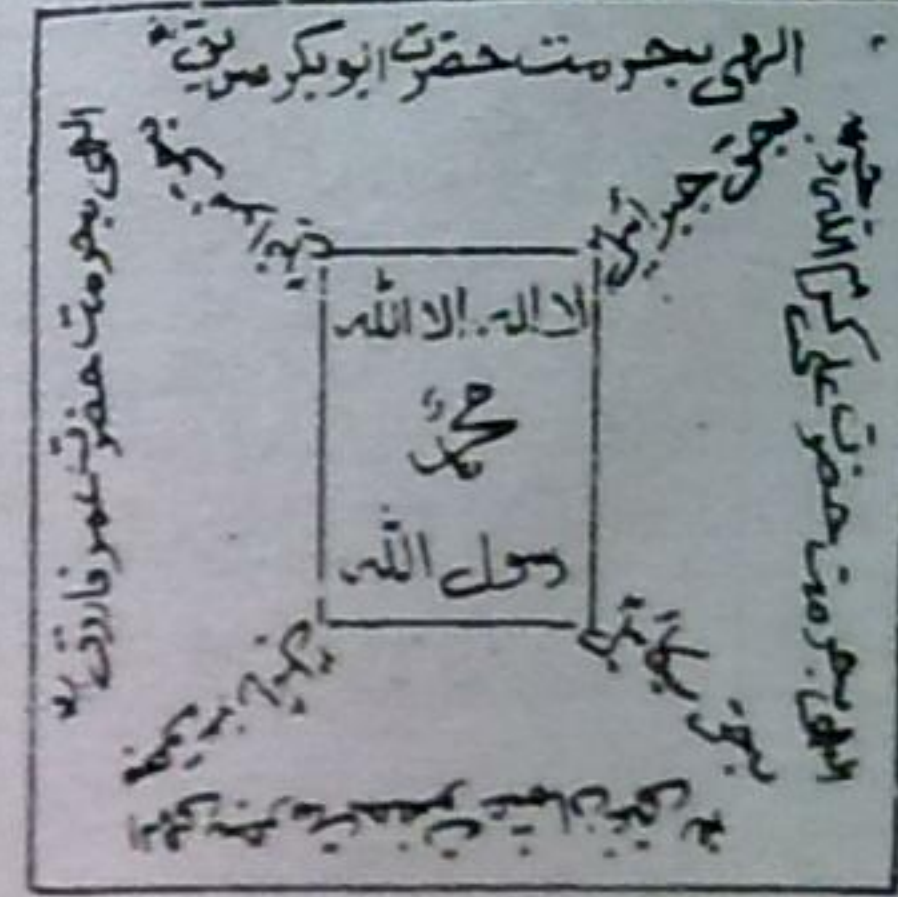 الہی بحرمت حضرت ابو بکر صدیقؓ
بحق جبرائیل
الہی بحرمت حضرت علی کرم اللہ
لا الہ الا اللہ
محمدؐ
رسول اللہ
الہی بحرمت حضرت عمر فاروقؓ
بحق میکائیل
الہی بحرمت حضرت عثمان غنیؓ